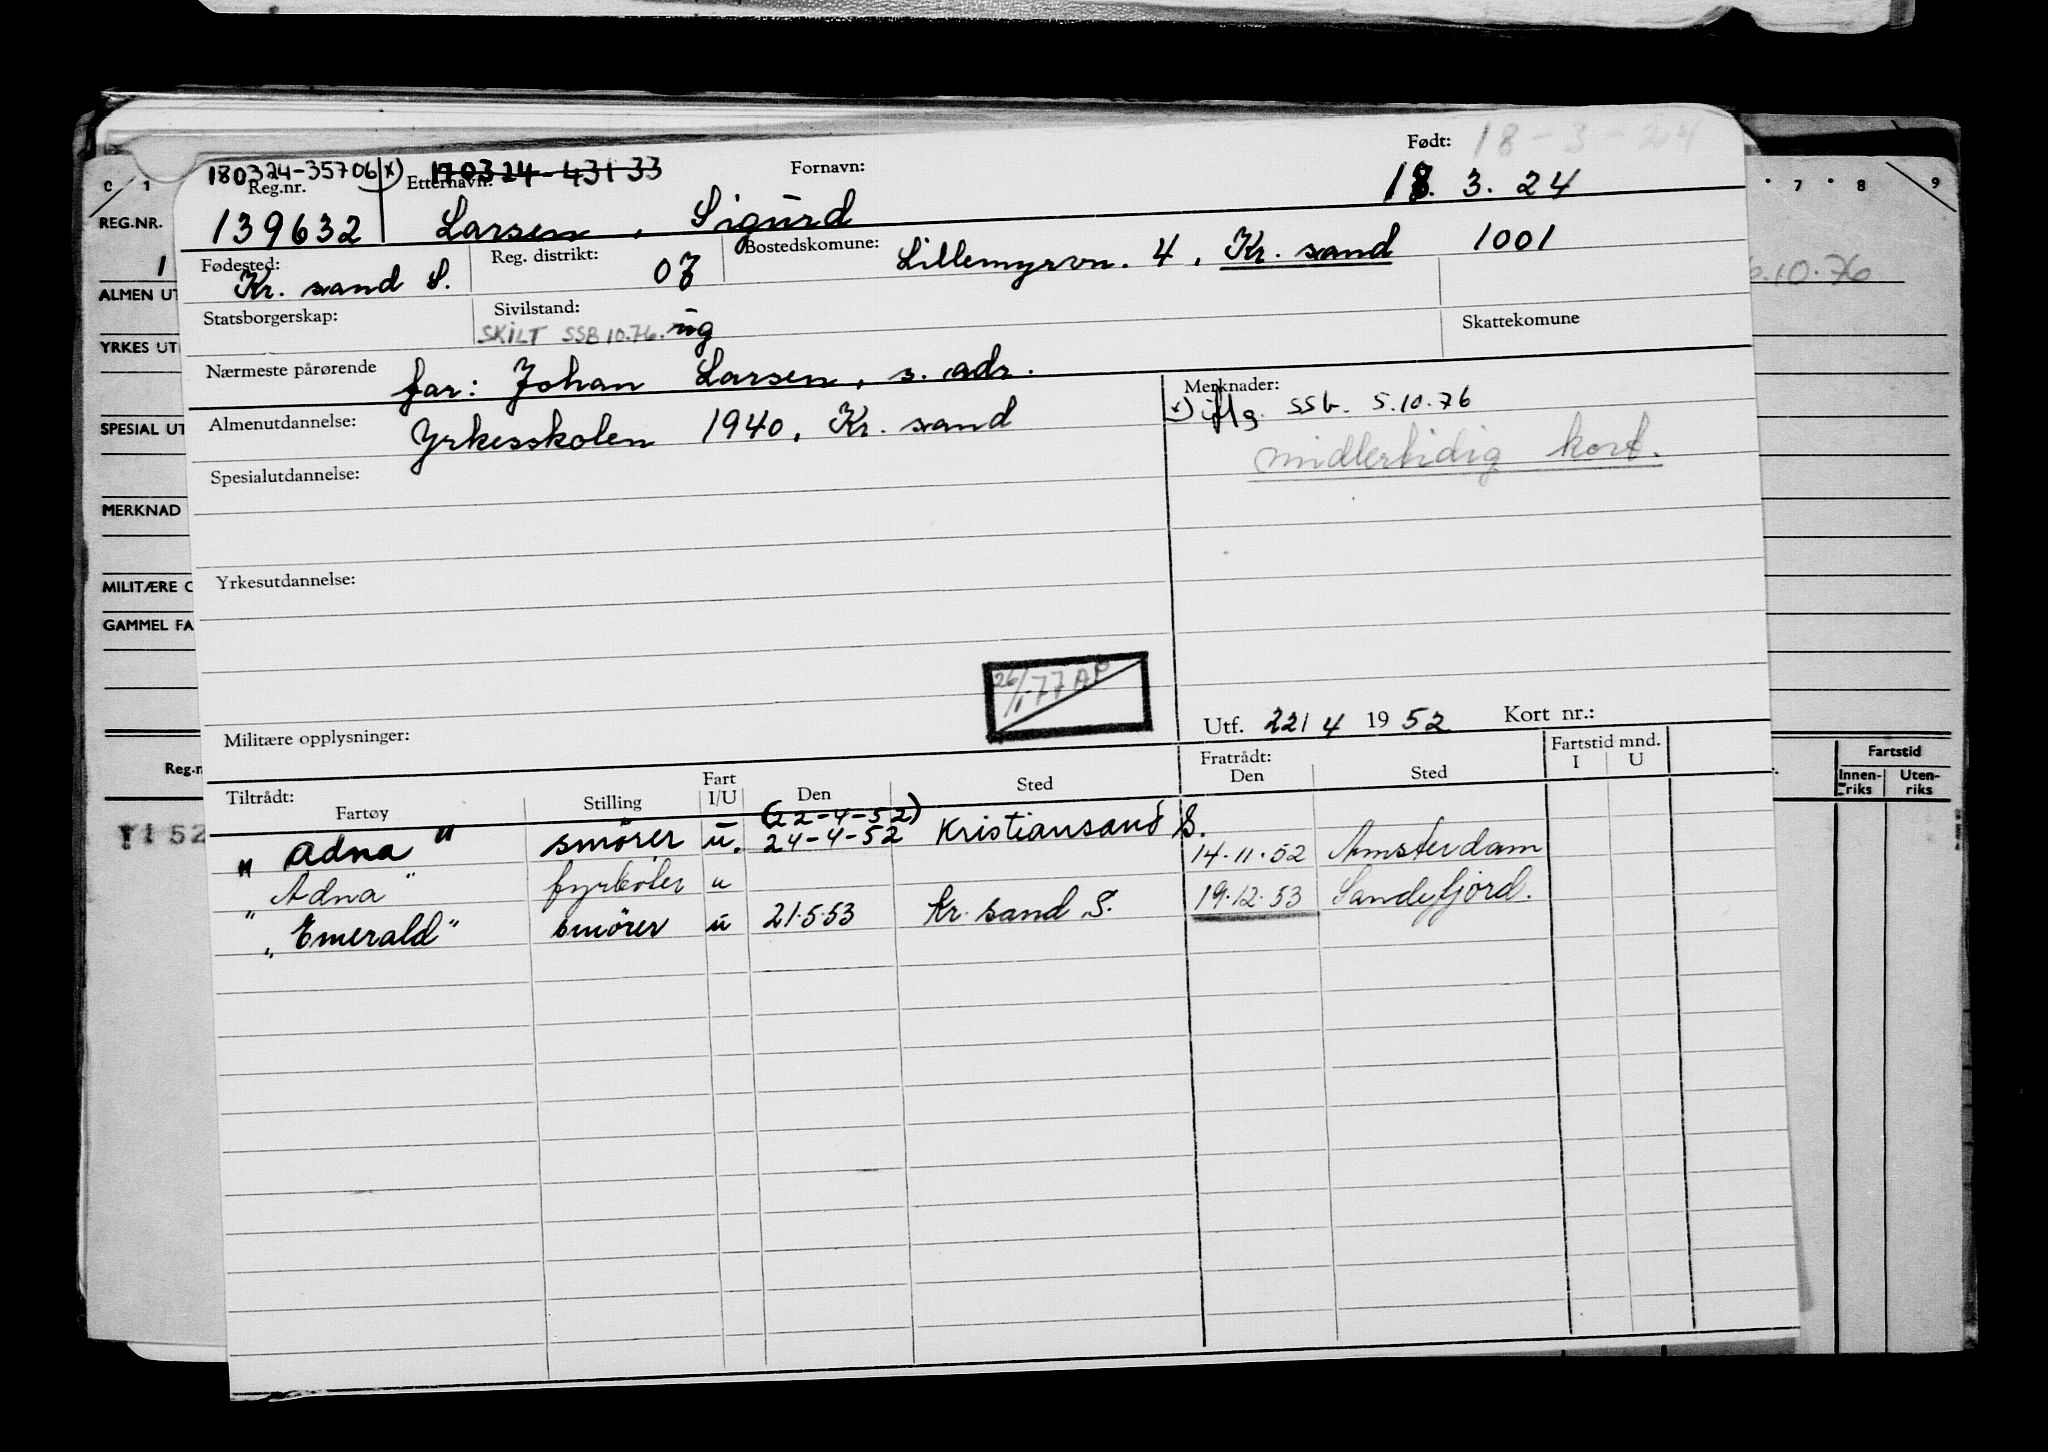 Født: 18-3-24
180324-35706 x) 170324-43133 Fornavn:
Reg.nr. Etternavn: 18. 3. 24
139632 Larsen, Sigurd
Fødested: Reg. distrikt: 07 Bostedskomune: Lillemyrvn. 4, Kr. sand 1001
Kr. sand S.
Statsborgerskap: Sivilstand: Skattekomune
SKILT SSB 10.76. ug
Nærmeste pårørende far: Johan Larsen, s. adr.
Merknader:
x) iflg. SSb. 5.10.76
midlertidig kort.
Almenutdannelse: Yrkesskolen 1940, Kr. sand
Spesialutdannelse:
Yrkesutdannelse:
26/1-77 AP
Militære opplysninger:
Utf. 22/4 1952 Kort nr.:
Tiltrådt: Fart Fratrådt: Fartstid mnd.
Fartøy Stilling I/U Den Sted Den Sted I U
(22-4-52)
"Adna" smører u. 24-4-52 Kristiansand S. 14.11.52 Amsterdam
"Adna" fyrbøter u 19.12.53 Sandefjord.
"Emerald" smører u 21.5.53 Kr. sand S.
C 1
REG.NR.
1
ALMEN UT
YRKES UT
SPESIAL UT
MERKNAD
MILITÆRE O
GAMMEL FA
Reg.n
7 8 9
.10.76
Fartstid
Innen-
riks
Uten-
riks